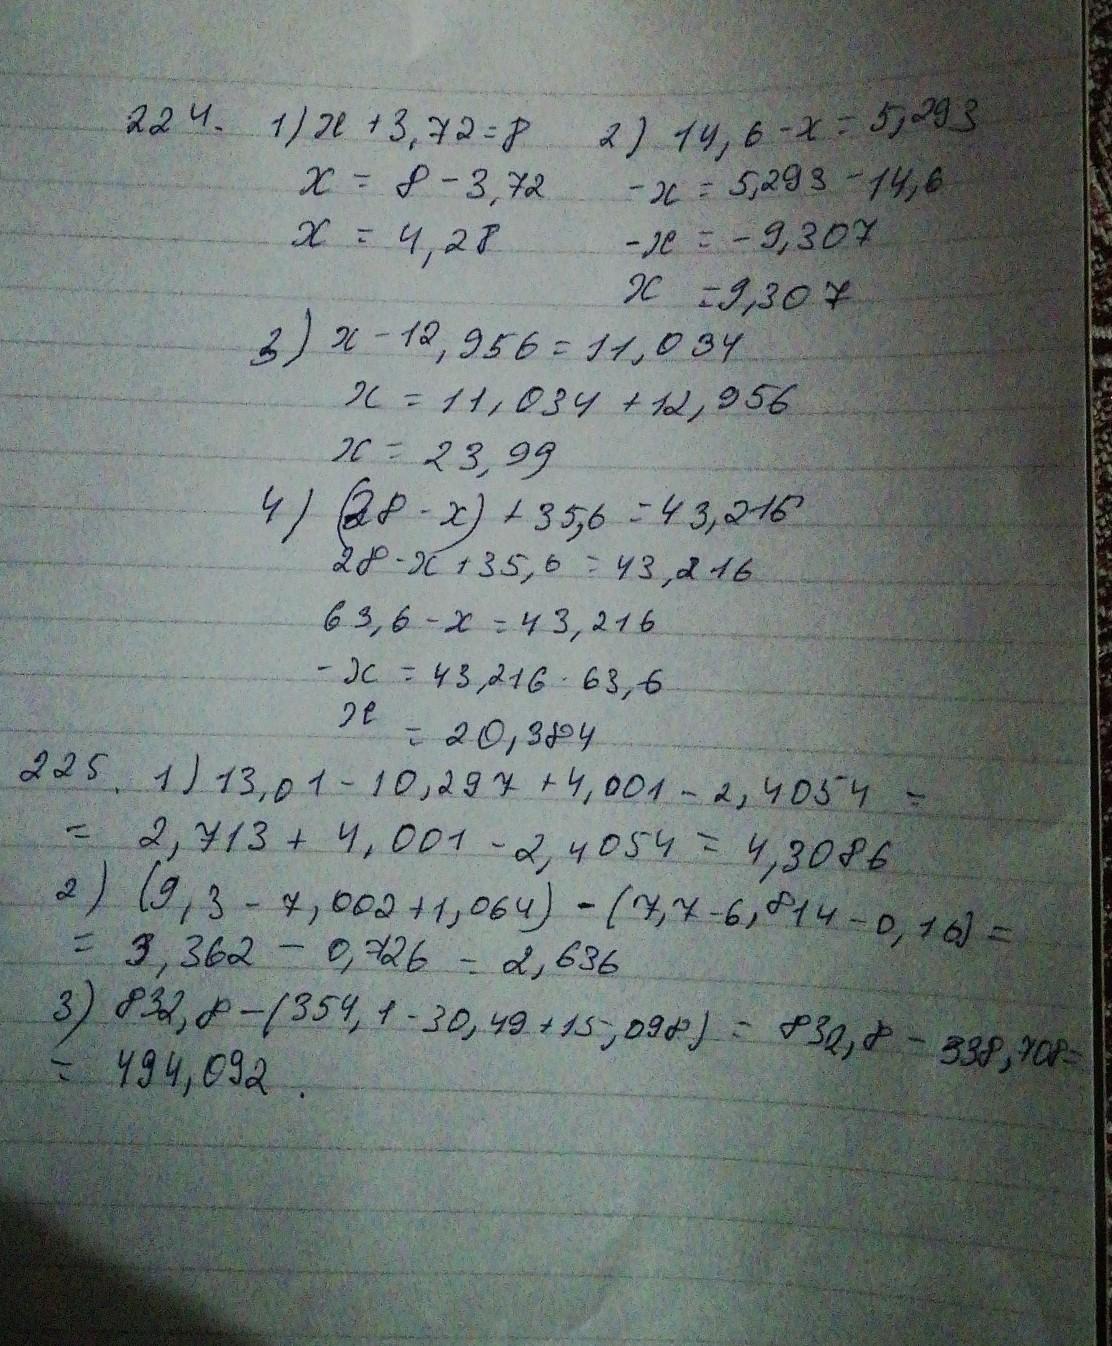 224. 1) x + 3,72 = 8 2) 14,6 - x = 5,293
x = 8 - 3,72 -x = 5,293 - 14,6
x = 4,28 -x = -9,307
x = 9,307
3) x - 12,956 = 11,034
x = 11,034 + 12,956
x = 23,99
4) (28 - x) + 35,6 = 43,216
28 - x + 35,6 = 43,216
63,6 - x = 43,216
-x = 43,216 - 63,6
x = 20,384
225. 1) 13,01 - 10,297 + 4,001 - 2,4054 =
= 2,713 + 4,001 - 2,4054 = 4,3086
2) (9,3 - 7,002 + 1,064) - (7,7 - 6,814 - 0,16) =
= 3,362 - 0,726 = 2,636
3) 832,8 - (354,1 - 30,49 + 15,098) = 832,8 - 338,708 =
= 494,092.